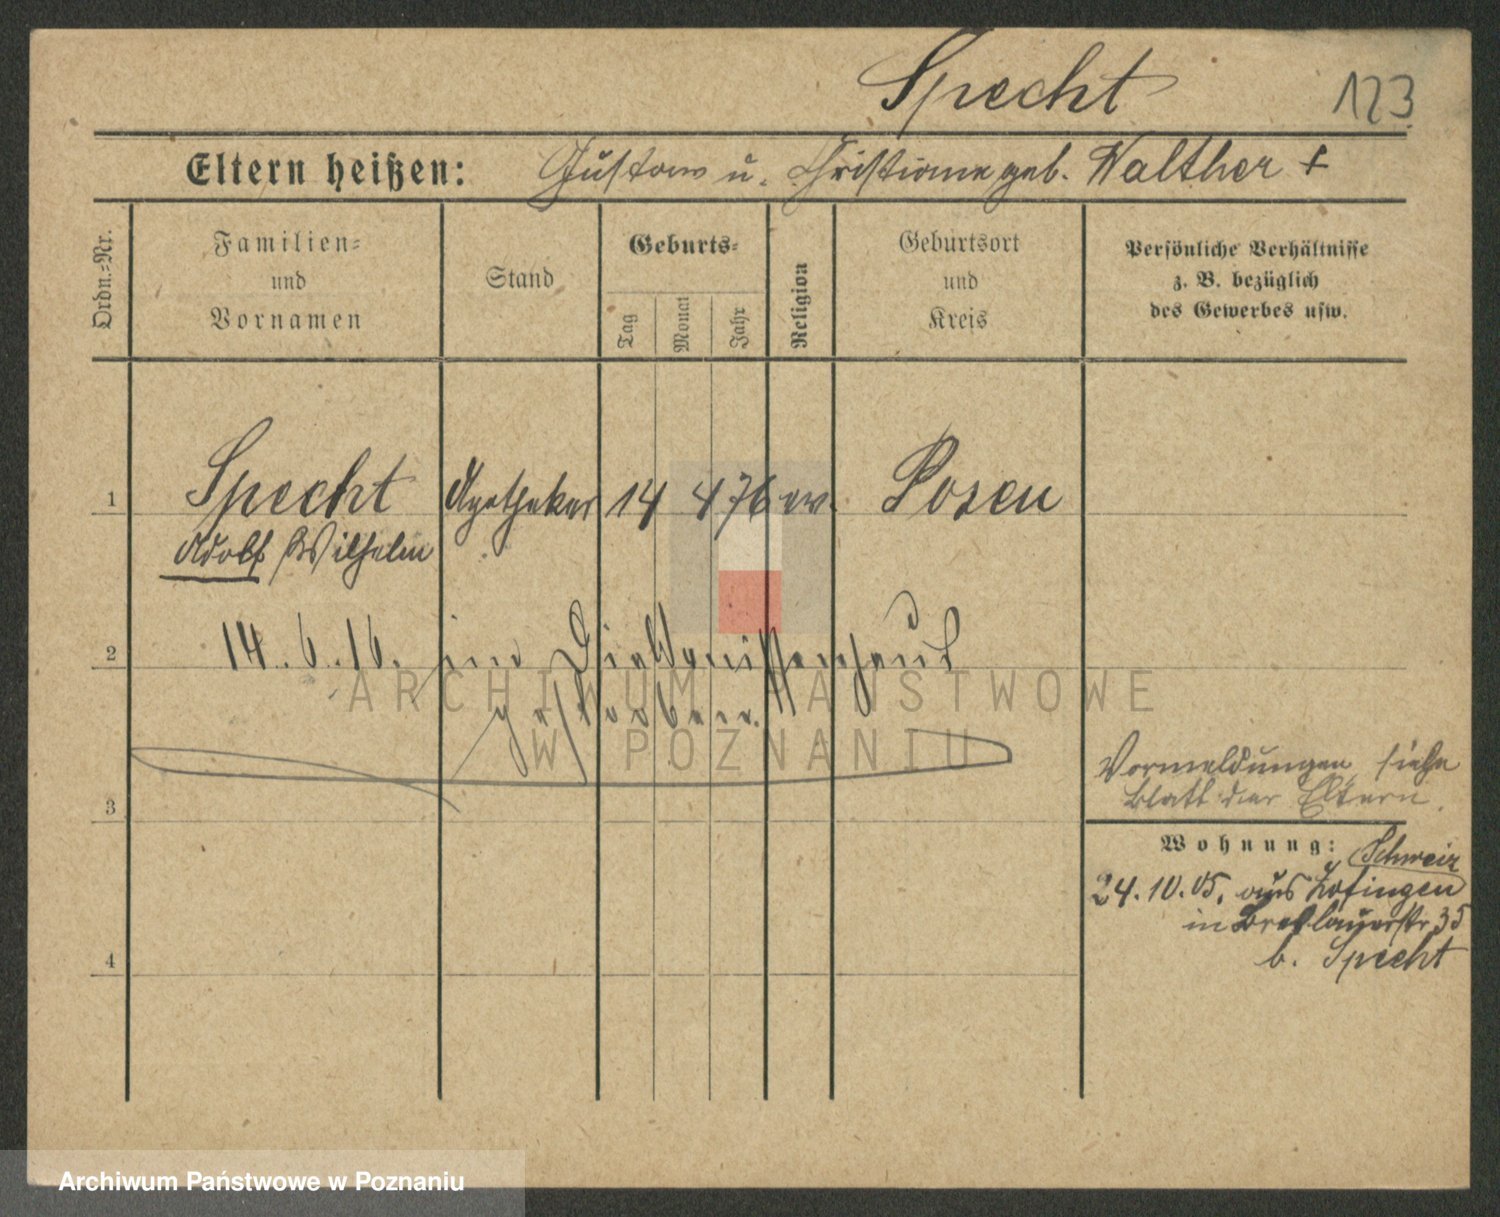 Specht 123
Eltern heißen: Gustav u. Christiane geb. Walther +
Ordn.-Nr.
Familien-
und
Vornamen
Stand
Geburts-
Tag
Monat
Jahr
Religion
Geburtsort
und
Kreis
Persönliche Verhältnisse
z. B. bezüglich
des Gewerbes usw.
1 Specht Apotheker 14 4 76 ev. Posen
Adolf Wilhelm
2 14.6.16. im Diakonissenhaus
gestorben.
ARCHIWUM PAŃSTWOWE
W POZNANIU
Vormeldungen siehe
Blatt der Eltern.
3
Wohnung: Schweiz
24.10.05. aus Zofingen
in Breslauerstr. 35
b. Specht
4
Archiwum Państwowe w Poznaniu